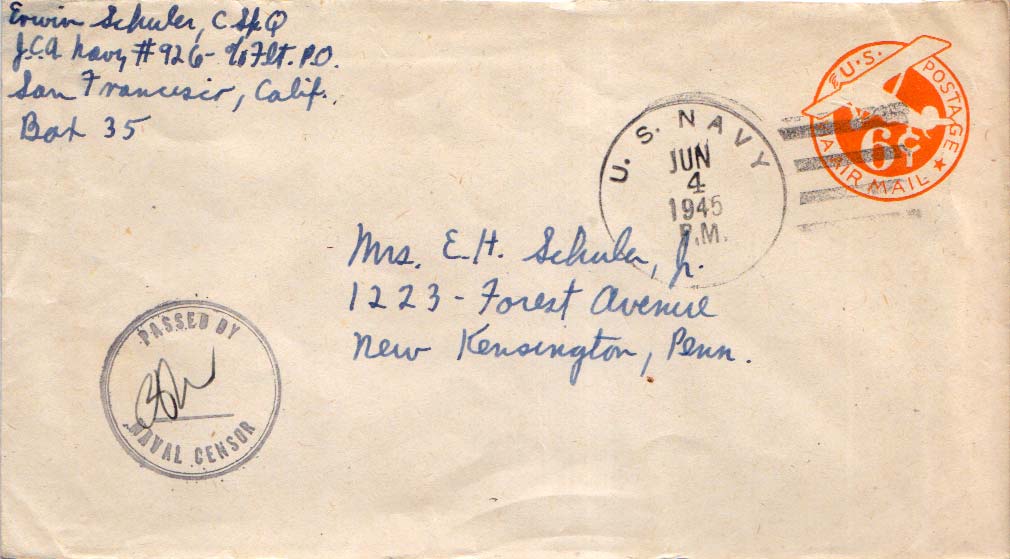 Erwin Schuler, C Sp Q
J.C.A. Navy #926 - % Flt. P.O.
San Francisco, Calif.
Box 35
U.S. POSTAGE
6¢
AIR MAIL
U. S. NAVY
JUN
4
1945
P.M.
Mrs. E. H. Schuler, Jr.
1223 - Forest Avenue
New Kensington, Penn.
PASSED BY
NAVAL CENSOR